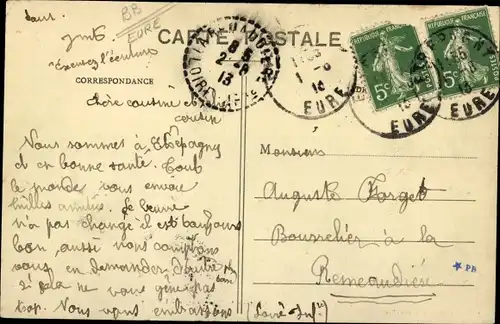 BB
EURE
CARTE POSTALE
Excusez l'écriture
CORRESPONDANCE
Chère cousine et
cousin
Nous sommes à Etrépagny
et en bonne santé. Tout
le monde vous envoie
milles amitiés. Le beurre
n'a pas changé il est toujours
bon, aussi nous comptons
vous en demander
si cela ne vous gêne pas
trop. Nous vous embrassons
8 5
2 - 9
13
LOIRE-INF
EURE
EURE
REPUBLIQUE FRANÇAISE
5c
POSTES
REPUBLIQUE FRANÇAISE
5c
POSTES
Monsieur
Auguste Forget
Bourrelier à la
Remaudière
(Loire-Inf)